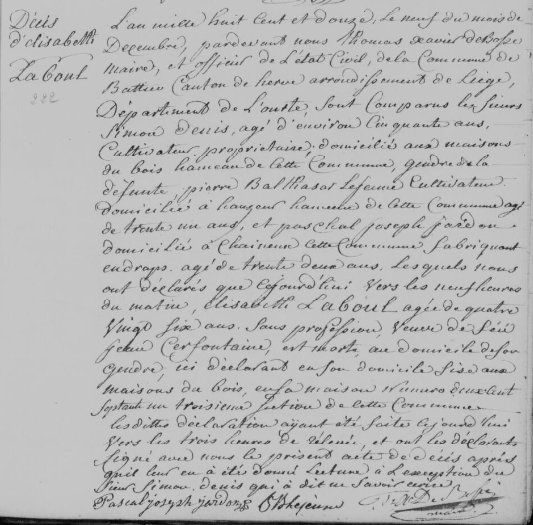 Décès
d'elisabeth
Laboul
222
L'an mille huit cent et douze, le neuf du mois de
Decembre, pardevant nous Thomas xavier deBosse
maire, et officier de L'état Civil, de la Commune de
Battice Canton de herve arrondissement de Liege,
Département de L'ourte sont Comparus les sieurs
Simon denis, agé d'environ Cinquante ans,
Cultivateur proprietaire, domicilié aux maisons
du bois hameau de Cette Commune, gendre de la
défunte, pierre Balthasar Lejeune Cultivateur
domicilié à hauzeur hameau de Cette Commune agé
de trente un ans, et paschal joseph jardon
domicilié à Chaineux Cette Commune fabriquant
en draps, agé de trente deux ans, Lesquels nous
ont déclarés que Cejourd'hui vers les neuf heures
du matin, Elisabeth Laboul agée de quatre
vingt six ans, Sans profession, Veuve de feu
jean Cerfontaine, est morte, au domicile de son
gendre, ici déclarant en son domicile sise aux
maisons du bois, en sa maison Numero deux cent
septante un troisieme section de Cette Commune
lesdittes déclaration ayant été faite Cejourd'hui
vers les trois heures de relevée, et ont les déclarants
signé avec nous le présent acte de décès après
qu'il leur en a étés donné Lecture à L'exception du
sieur Simon denis qui à dit ne savoir ecrire
Pascal joseph jardon PB Lejeune